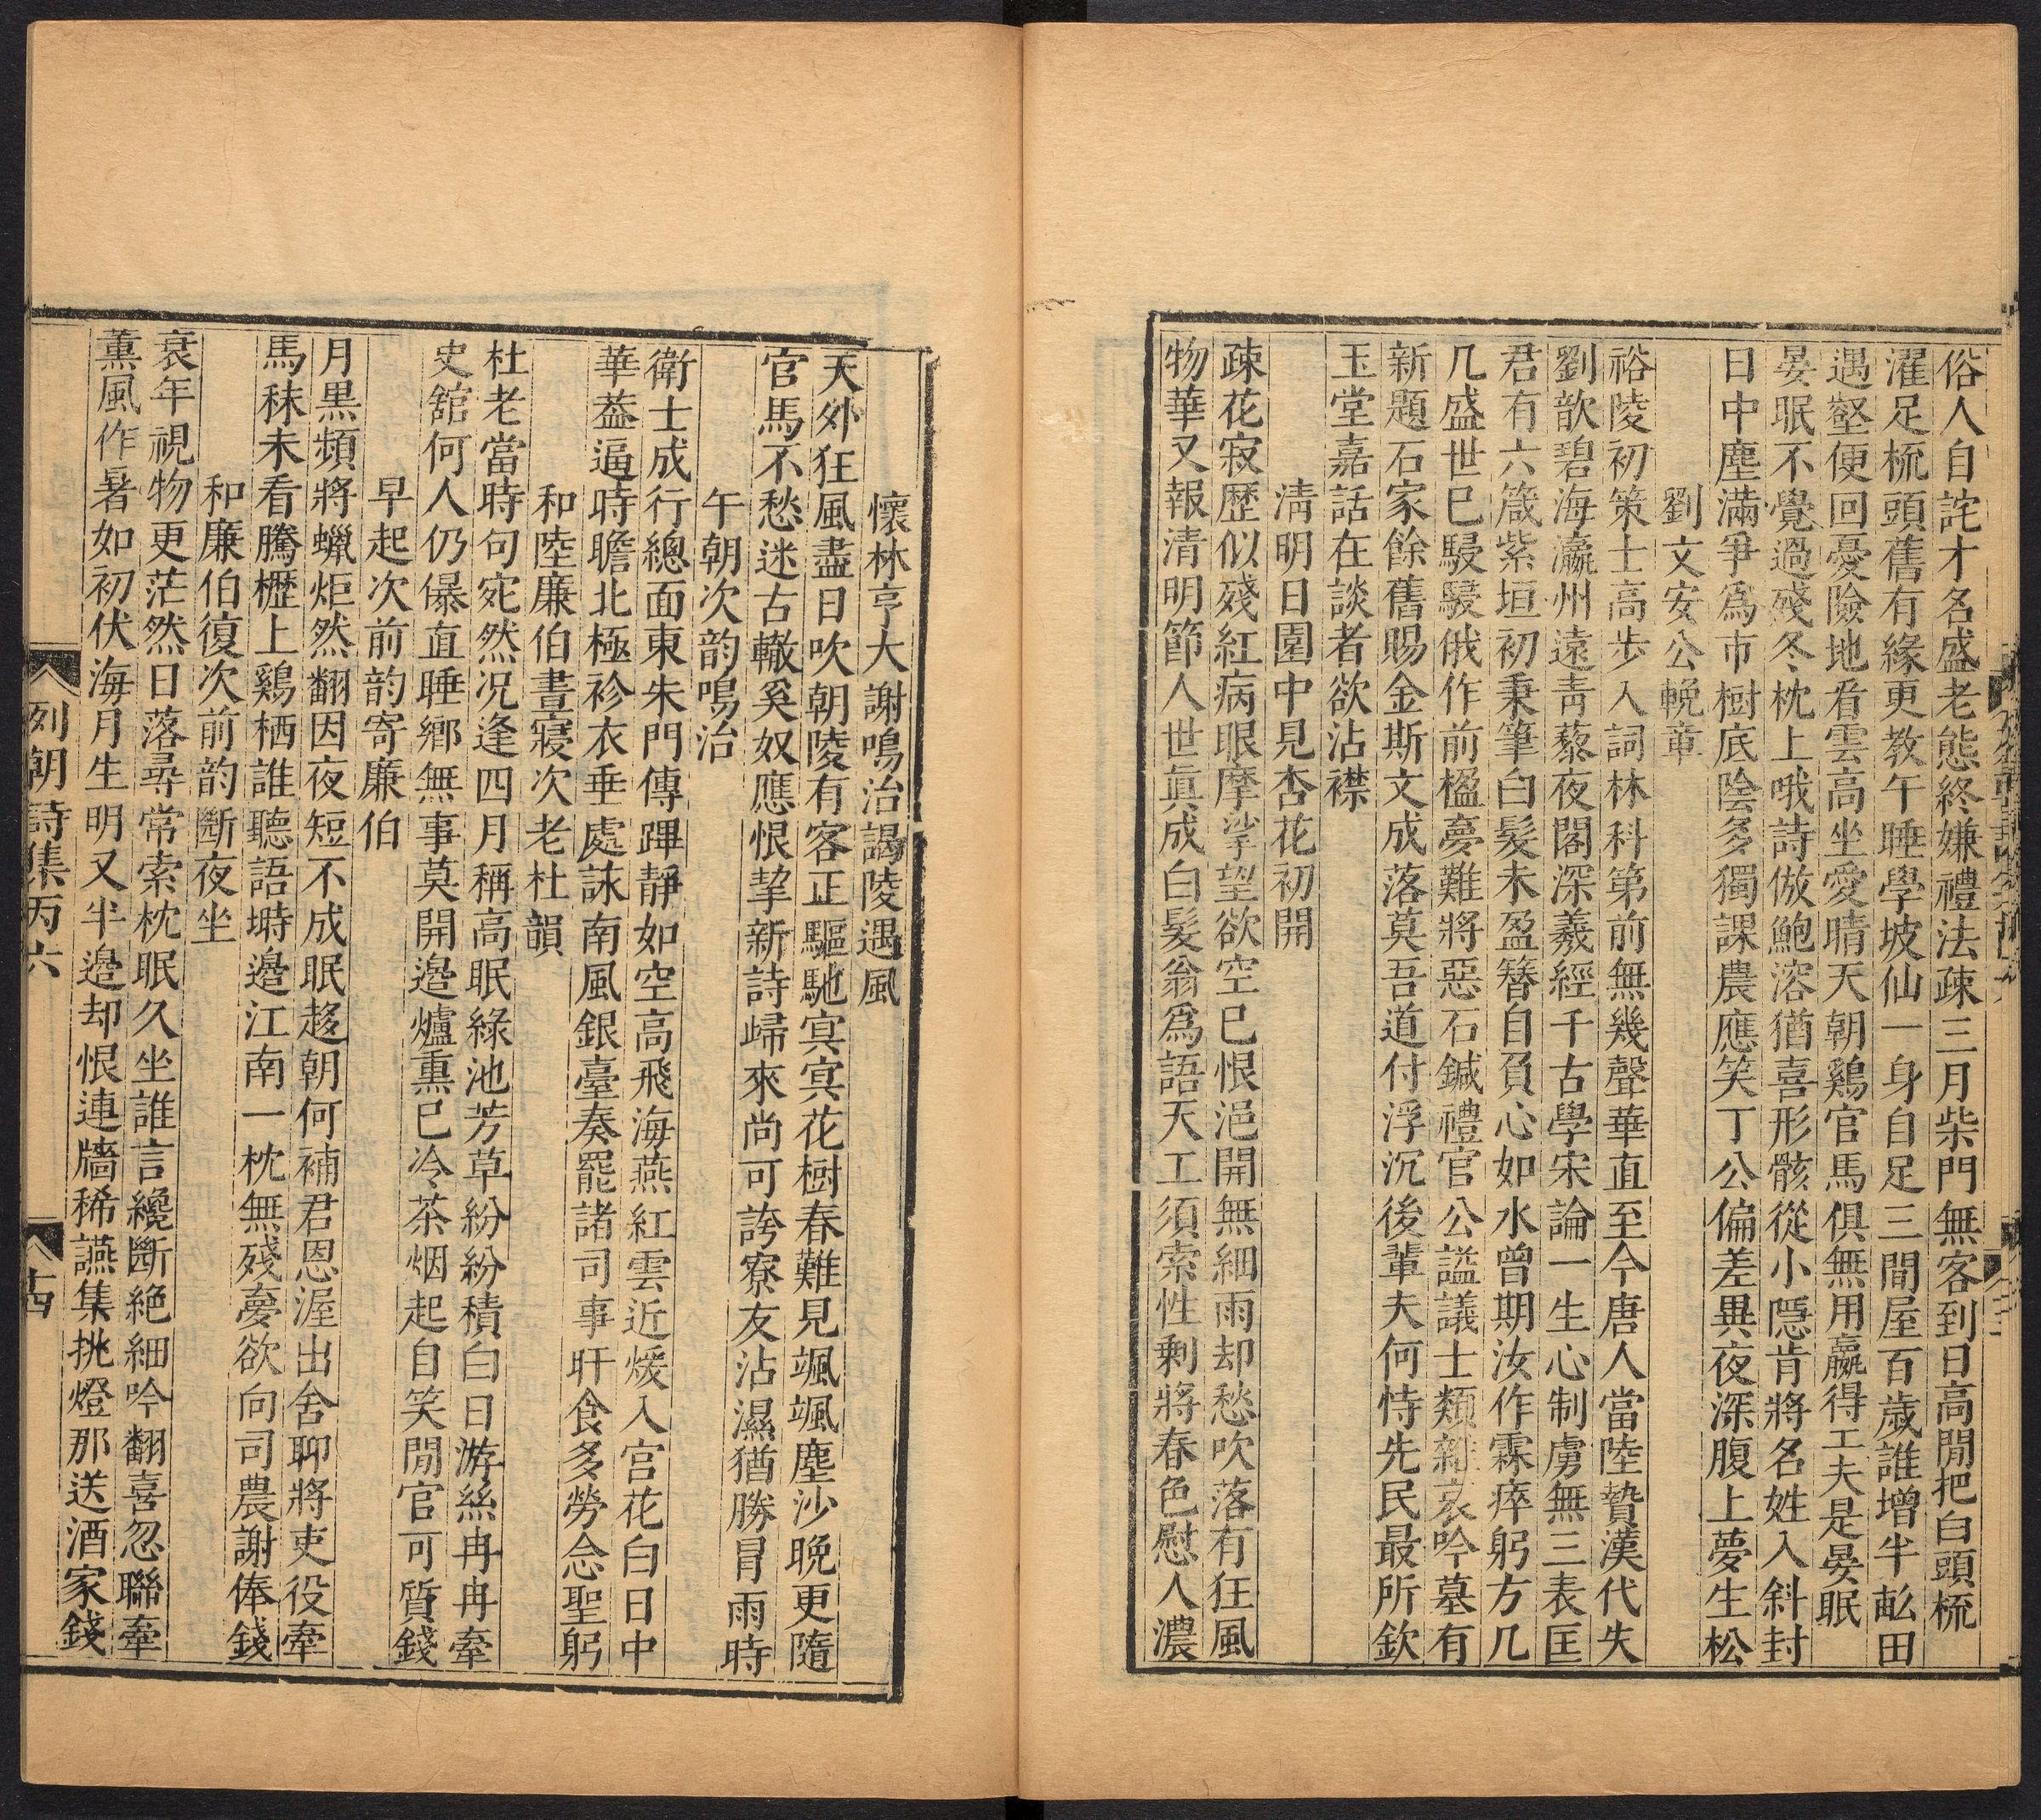 俗人自詫才名盛老態終嫌禮法疎三月柴門無客到日高閒把白頭梳
濯足梳頭舊有緣更教午睡學坡仙一身自足三間屋百歲誰增半畝田
遇壑便回憂險地看雲高坐愛晴天朝鷄官馬俱無用贏得工夫是晏眠
晏眠不覺過殘冬枕上哦詩倣鮑溶猶喜形骸從小隱肯將名姓入斜封
日中塵滿爭爲市樹底陰多獨課農應笑丁公偏差異夜深腹上夢生松
劉文安公輓章
裕陵初策士高步入詞林科第前無幾聲華直至今唐人當陸贄漢代失
劉歆碧海瀛州遠靑藜夜閣深羲經千古學宋論一生心制虜無三表匡
君有六箴紫垣初秉筆白髮未盈簪自負心如水曾期汝作霖瘁躬方几
几盛世巳駸駸俄作前楹夢難將惡石鍼禮官公謚議士類雜哀吟墓有
新題石家餘舊賜金斯文成落莫吾道付浮沉後輩夫何恃先民最所欽
玉堂嘉話在談者欲沾襟
淸明日園中見杏花初開
疎花寂歷似殘紅病眼摩挲望欲空已恨浥開無細雨却愁吹落有狂風
物華又報清明節人世眞成白髮翁爲語天工須索性剩將春色慰人濃
懷林亨大謝鳴治謁陵遇風
天外狂風盡日吹朝陵有客正驅馳冥冥花樹春難見颯颯塵沙晚更隨
官馬不愁迷古轍奚奴應恨挈新詩歸來尚可誇寮友沾濕猶勝冒雨時
午朝次韵鳴治
衛士成行總面東朱門傳蹕靜如空高飛海燕紅雲近煖入宫花白日中
華葢逼時瞻北極袗衣垂處詠南風銀臺奏罷諸司事旰食多勞念聖躬
和陸廉伯晝寢次老杜韻
杜老當時句宛然况逢四月稱高眠綠池芳草紛紛積白日游絲冉冉牽
史舘何人仍㬥直睡鄉無事莫開邉爐熏已冷茶烟起自笑閒官可質錢
早起次前韵寄廉伯
月黒頻將蠟炬然翻因夜短不成眠趍朝何補君恩渥出舍聊將吏役牽
馬秣未看騰櫪上鷄栖誰聽語塒邉江南一枕無殘夣欲向司農謝俸錢
和廉伯復次前韵斷夜坐
衰年視物更茫然日落尋常索枕眠久坐誰言纔斷絶細吟翻喜忽聯牽
薫風作暑如初伏海月生明又半邉却恨連牆稀讌集挑燈那送酒家錢
列朝詩集丙六
十四